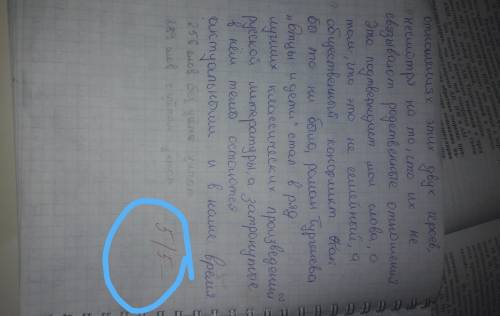 отношениях этих двух героев,
несмотря на то, что их не
связывают родственные отношения
Это подтверждает мои слова, о
том, что это не семейный, а
общественный конфликт.
бы то ни было, роман Тургенева
„Отцы и дети" стал в ряд
лучших классических произведений
русской литературы, а затронутые
в нём темы остаются
актуальными и в наше время
256 слов без
283 слов с
5/5